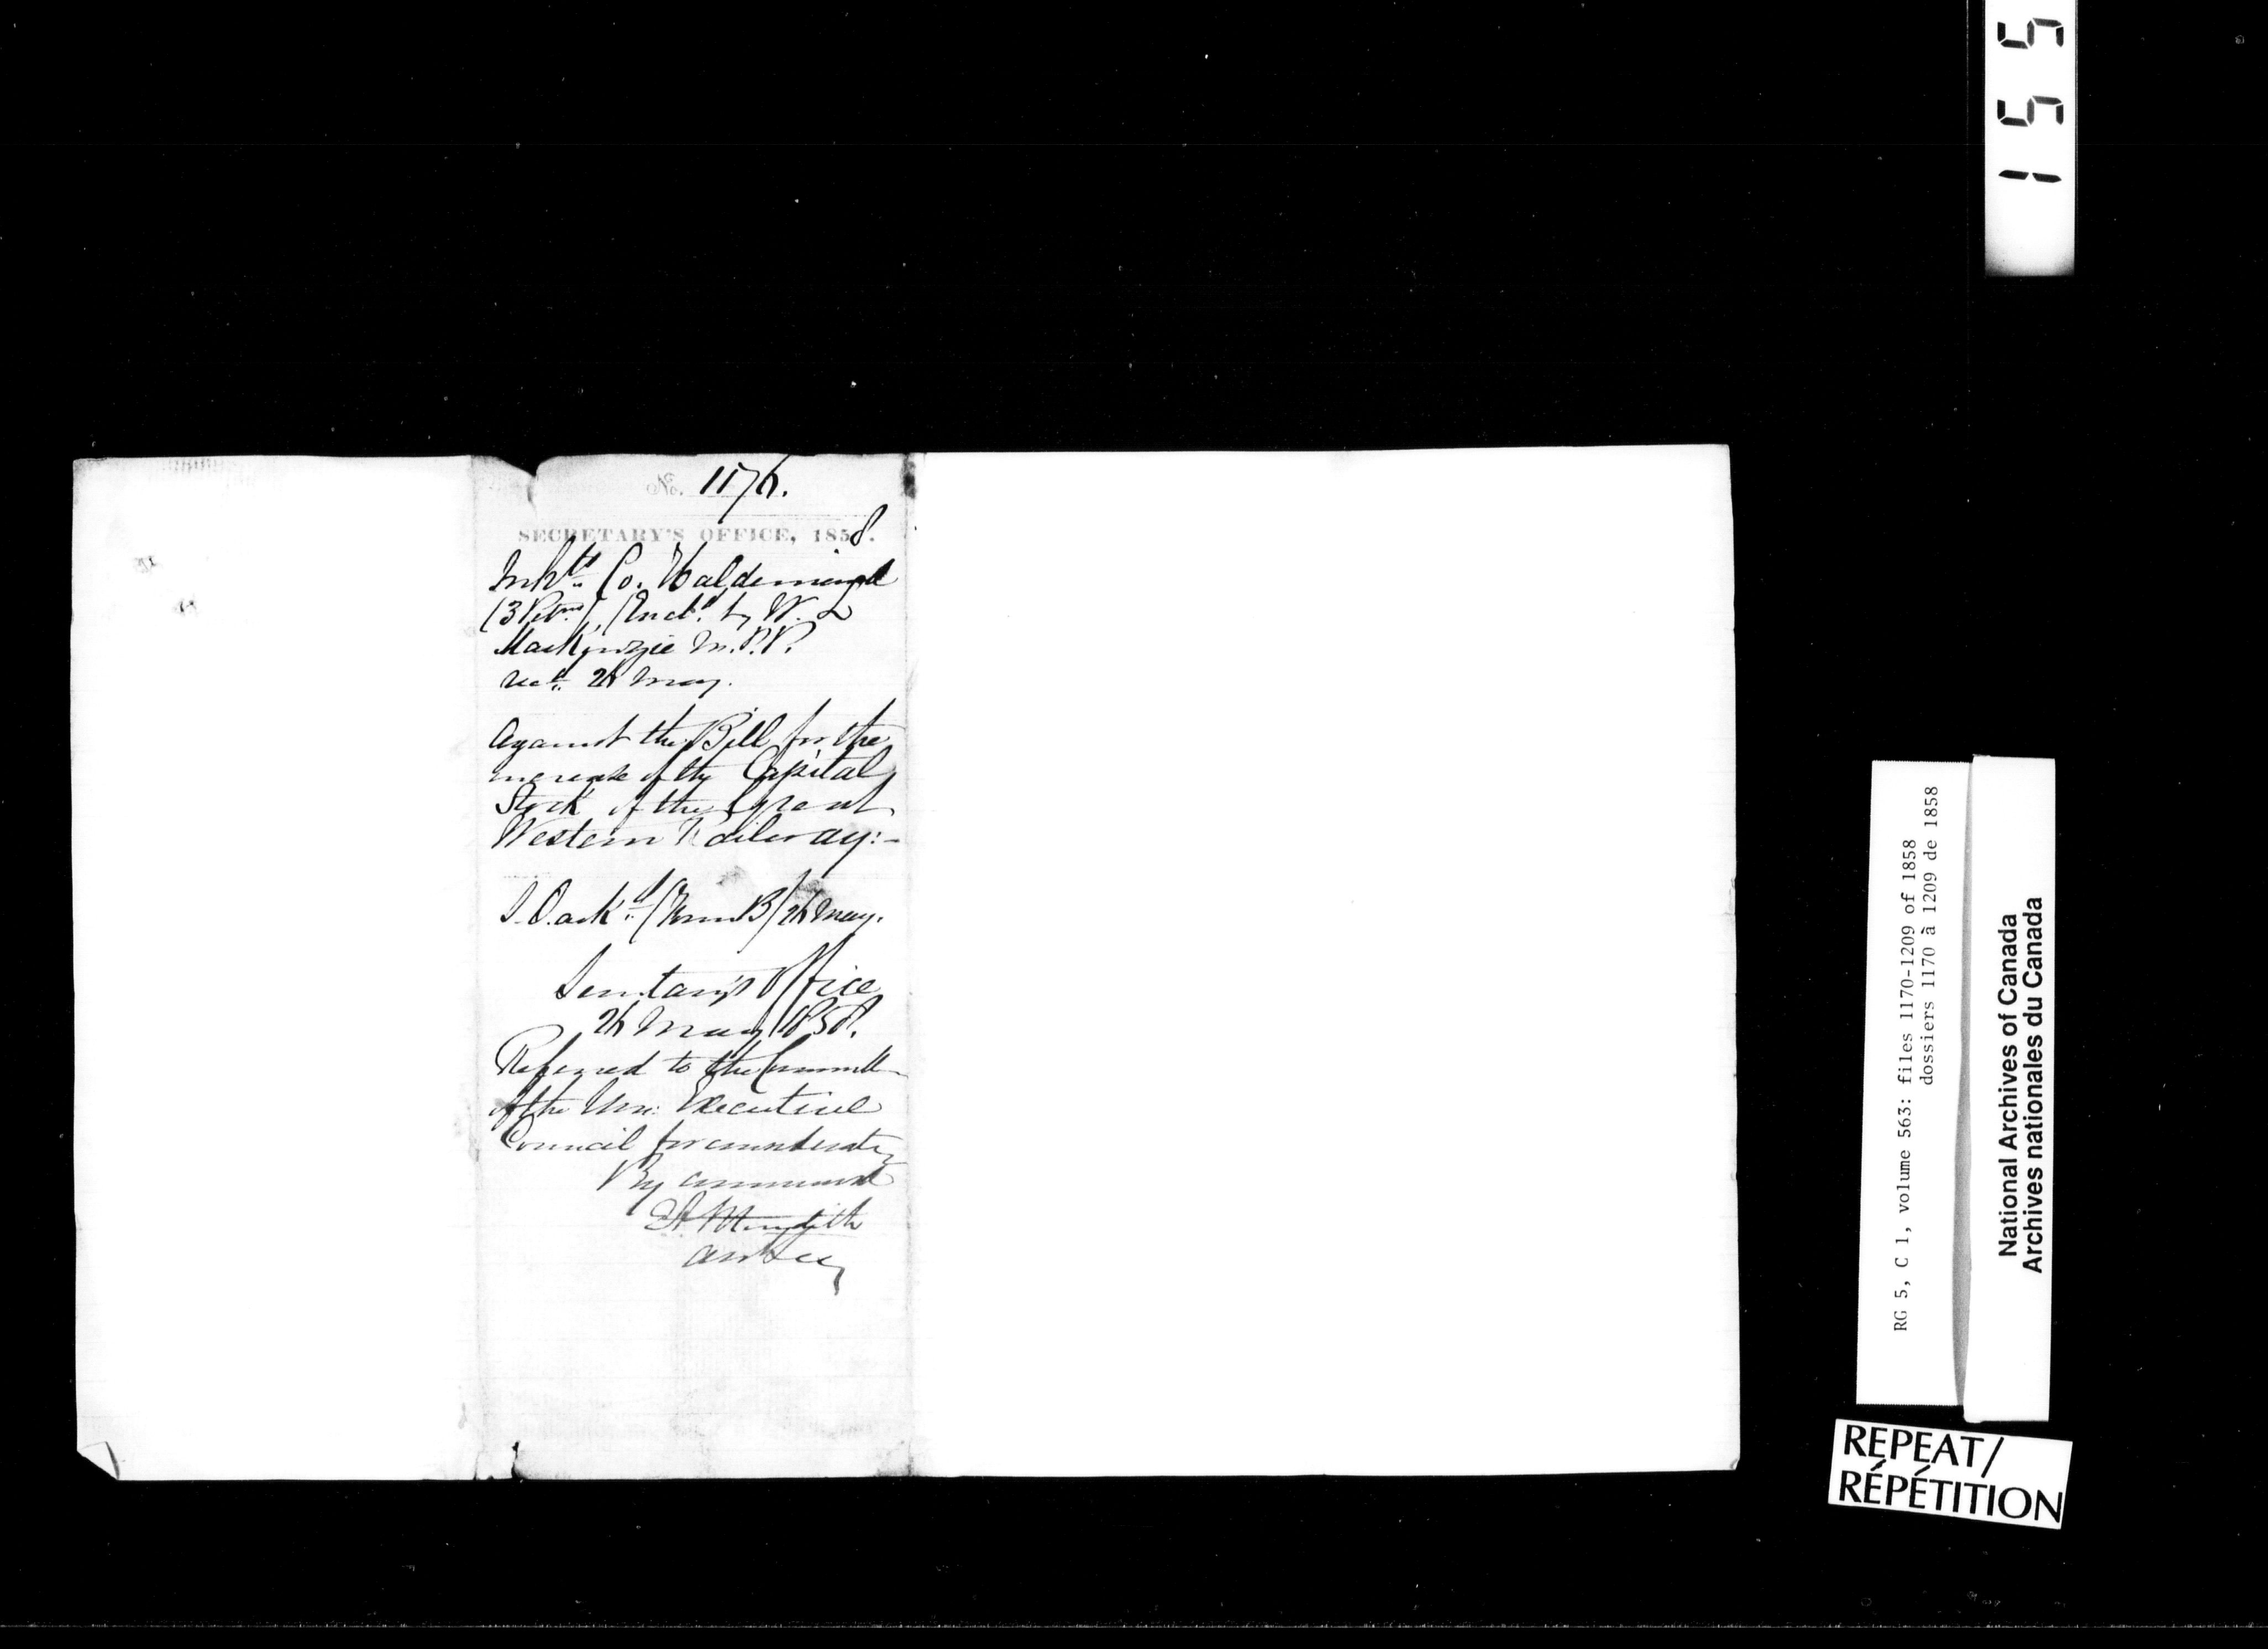 No. 1176.
SECRETARY'S OFFICE, 1858.
Inhts Co. Haldimand
(3 Petns), (Encd. by W. L
Mackenzie M.P.P.
recd. 26 May.
Against the Bill for the
increase of the Capital
Stock of the Great
Western Railway:-
ackd (Form B) 26 May.
Secretary's Office
26 May 1858.
Referred to the Committee
of the Hon: Executive
Council for consideration
By command
EA Meredith
Asst Secy
155
RG 5, C 1, volume 563: files 1170-1209 of 1858
dossiers 1170 à 1209 de 1858
National Archives of Canada
Archives nationales du Canada
REPEAT/
RÉPÉTITION